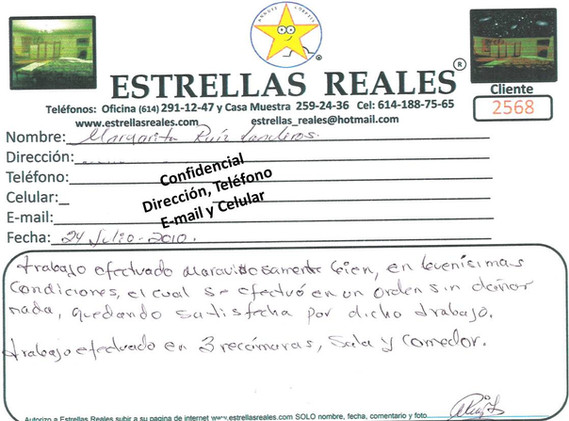 ESTRELLAS REALES®
Cliente
2568
Teléfonos: Oficina (614) 291-12-47 y Casa Muestra 259-24-36 Cel: 614-188-75-65
www.estrellasreales.com estrellas_reales@hotmail.com
Nombre: Margarita Ruíz
Dirección:
Teléfono:
Celular:
E-mail:
Confidencial
Dirección, Teléfono
E-mail y Celular
Fecha: 24 Julio-2010.
trabajo efectuado maravillosamente bien, en buenísimas
condiciones, el cual se efectuó en un orden sin dañar
nada, quedando satisfecha por dicho trabajo.
trabajo efectuado en 3 recámaras, Sala y Comedor.
Autorizo a Estrellas Reales subir a su pagina de internet www.estrellasreales.com SOLO nombre, fecha, comentario y foto